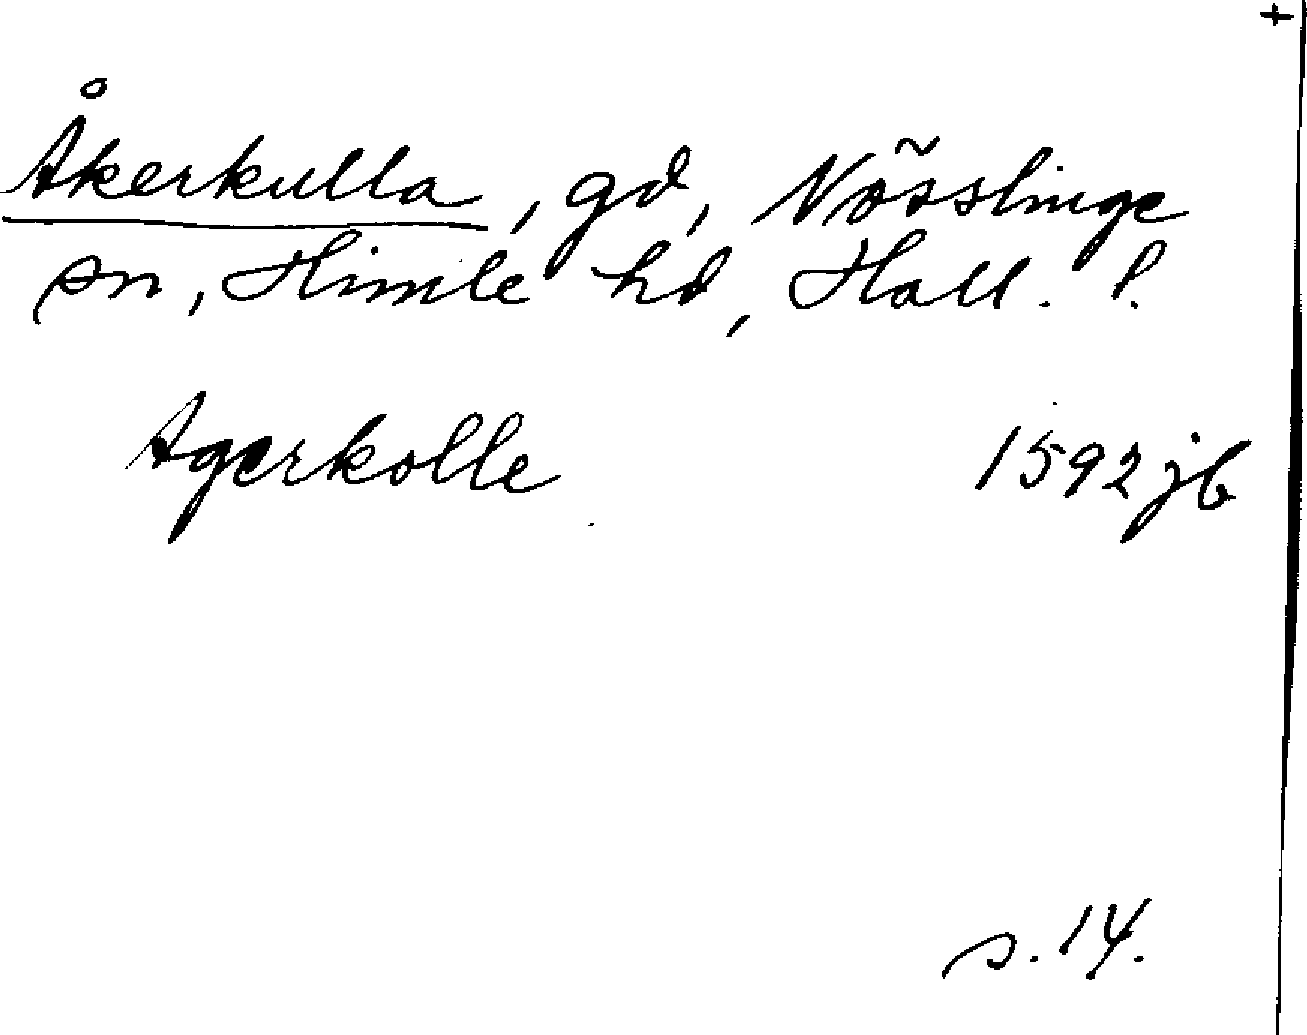 +
Åkerkulla, gd, Nösslinge
sn, Himle hd, Hall. l.
Agerkolle 1592 jb
s. 14.